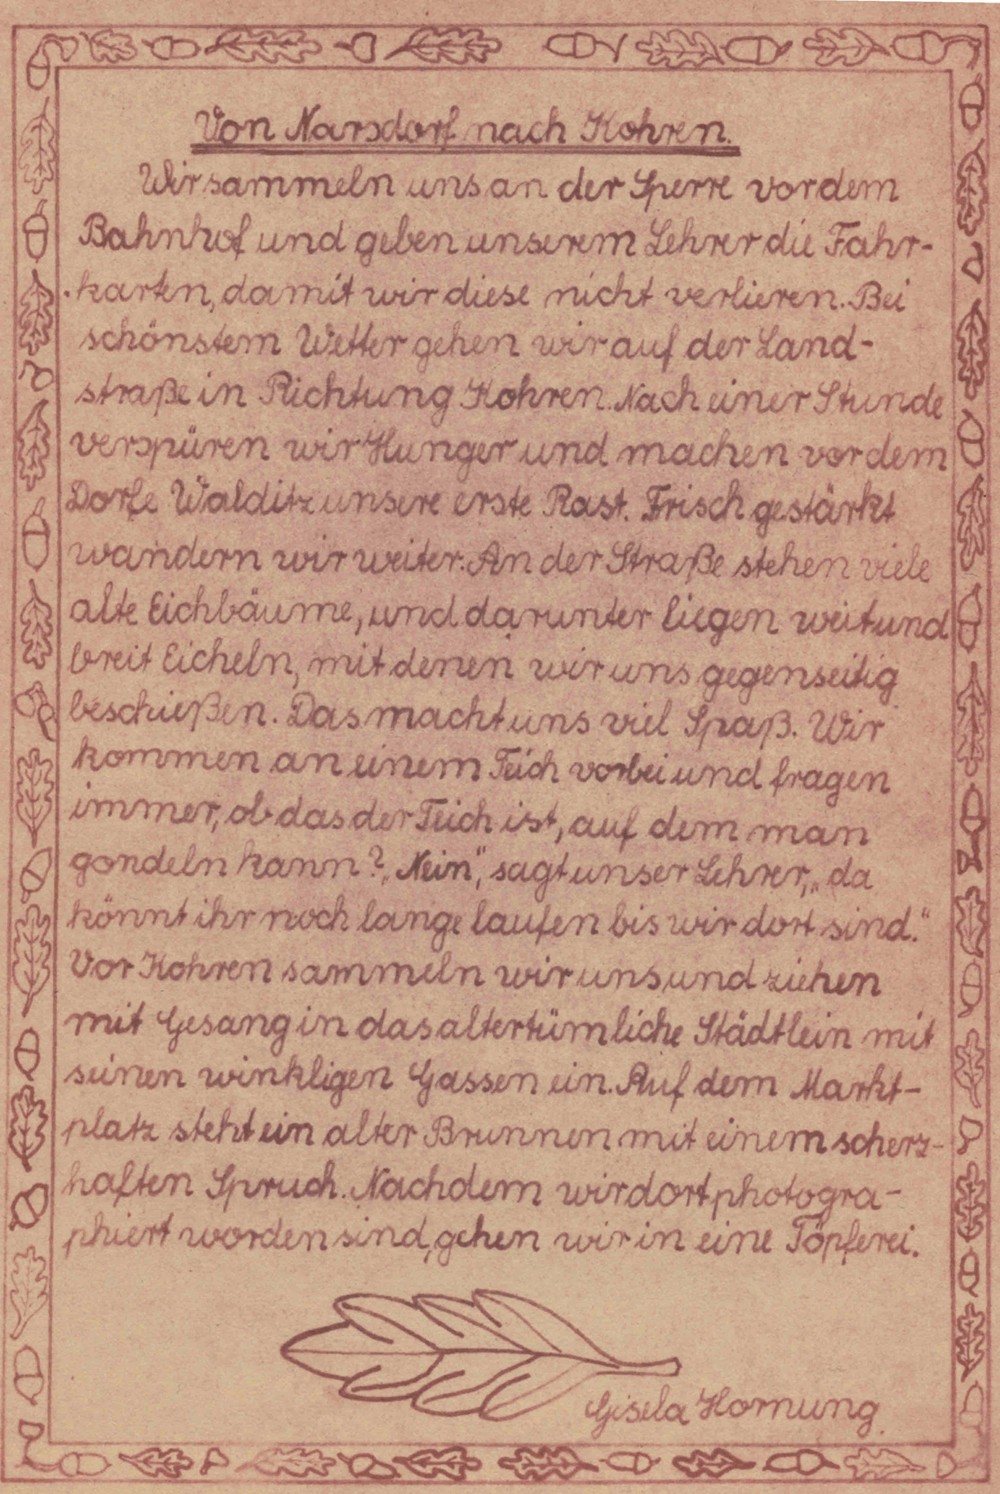 Von Narsdorf nach Kohren.
Wir sammeln uns an der Sperre vor dem
Bahnhof und geben unserem Lehrer die Fahr-
karten, damit wir diese nicht verlieren. Bei
schönstem Wetter gehen wir auf der Land-
straße in Richtung Kohren. Nach einer Stunde
verspüren wir Hunger und machen vor dem
Dorfe Walditz unsere erste Rast. Frisch gestärkt
wandern wir weiter. An der Straße stehen viele
alte Eichbäume, und darunter liegen weit und
breit Eicheln, mit denen wir uns gegenseitig
beschießen. Das macht uns viel Spaß. Wir
kommen an einem Teich vorbei und fragen
immer, ob das der Teich ist, auf dem man
gondeln kann? „Nein", sagt unser Lehrer, „da
könnt ihr noch lange laufen bis wir dort sind."
Vor Kohren sammeln wir uns und ziehen
mit Gesang in das altertümliche Städtlein mit
seinen winkligen Gassen ein. Auf dem Markt-
platz steht ein alter Brunnen mit einem scherz-
haften Spruch. Nachdem wir dort photogra-
phiert worden sind, gehen wir in eine Töpferei.
Gisela Hornung